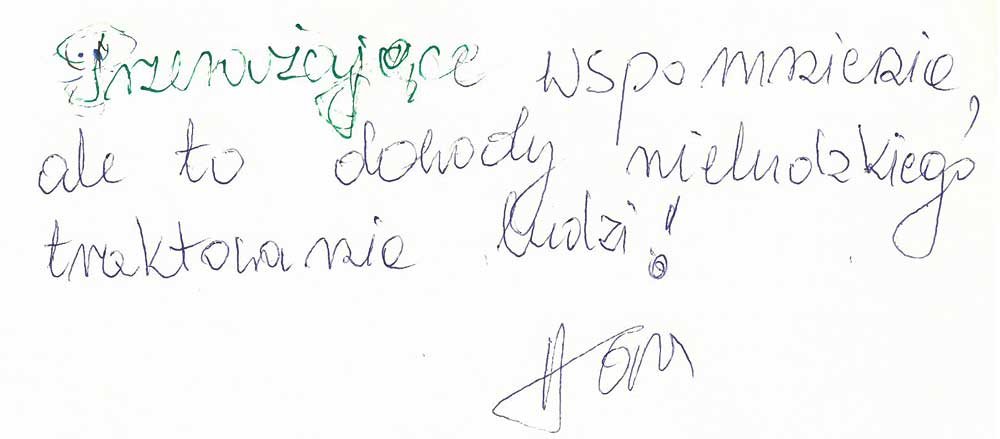 Przerażające wspomnienie,
ale to dowody nieludzkiego
traktowanie ludzi!